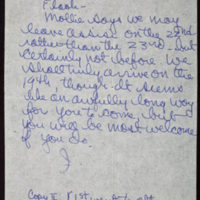 Mollie says we may
leave Assisi on the 22nd
rather than the 23rd, but
certainly not before. We
shall truly arrive on the
19th, though. It seems
like an awfully long way
for you to come, but
you will be most welcome
if you do.
J